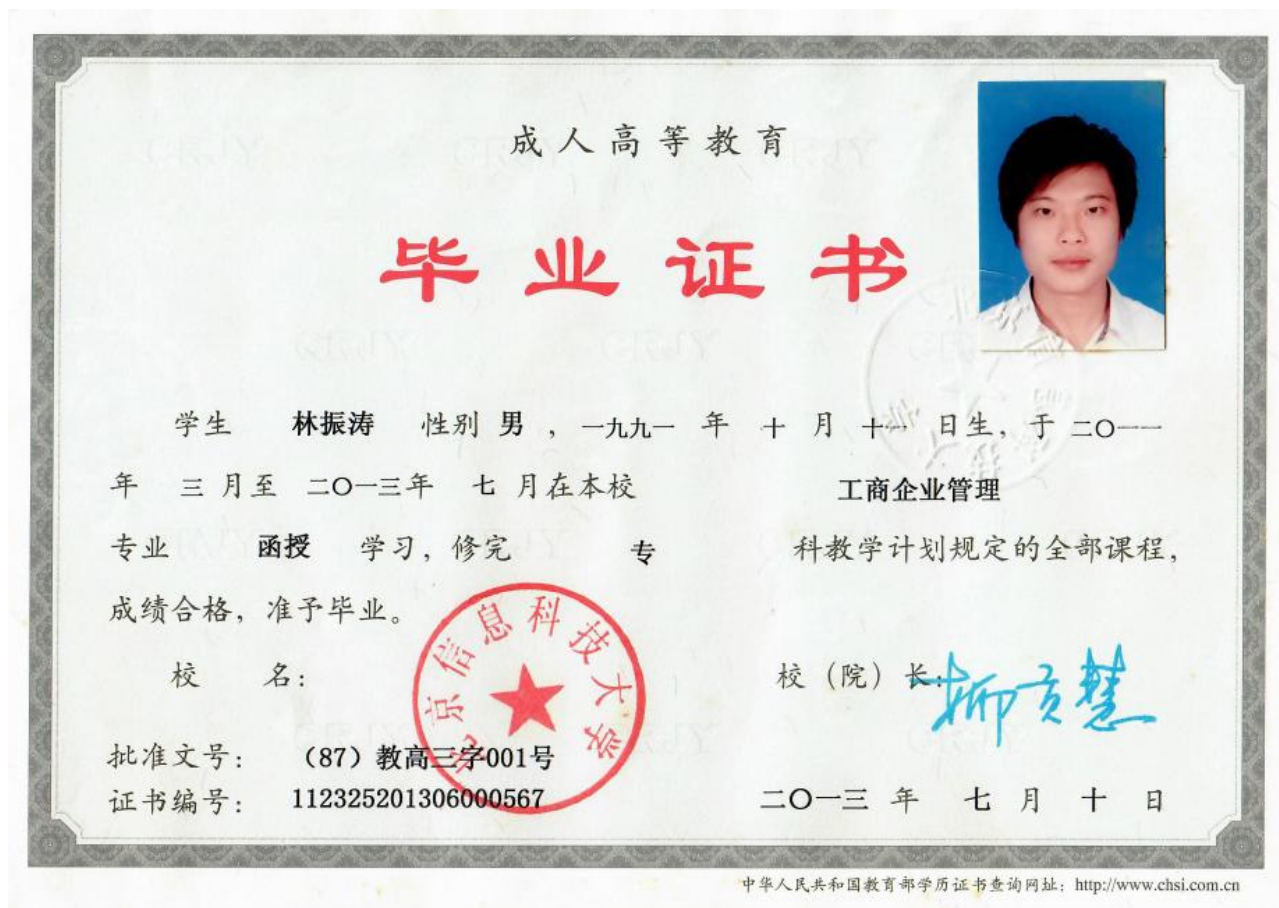 成人高等教育
毕业证书
学生 林振涛 性别 男 , 一九九一 年 十 月 十一 日生, 于 二〇一一
年 三 月至 二〇一三年 七 月在本校 工商企业管理
专业 函授 学习, 修完 专 科教学计划规定的全部课程,
成绩合格, 准予毕业。
校 名: 北京信息科技大学
校（院）长: 柳贡慧
批准文号: （87）教高三字001号
证书编号: 112325201306000567
二〇一三 年 七 月 十 日
中华人民共和国教育部学历证书查询网址: http://www.chsi.com.cn